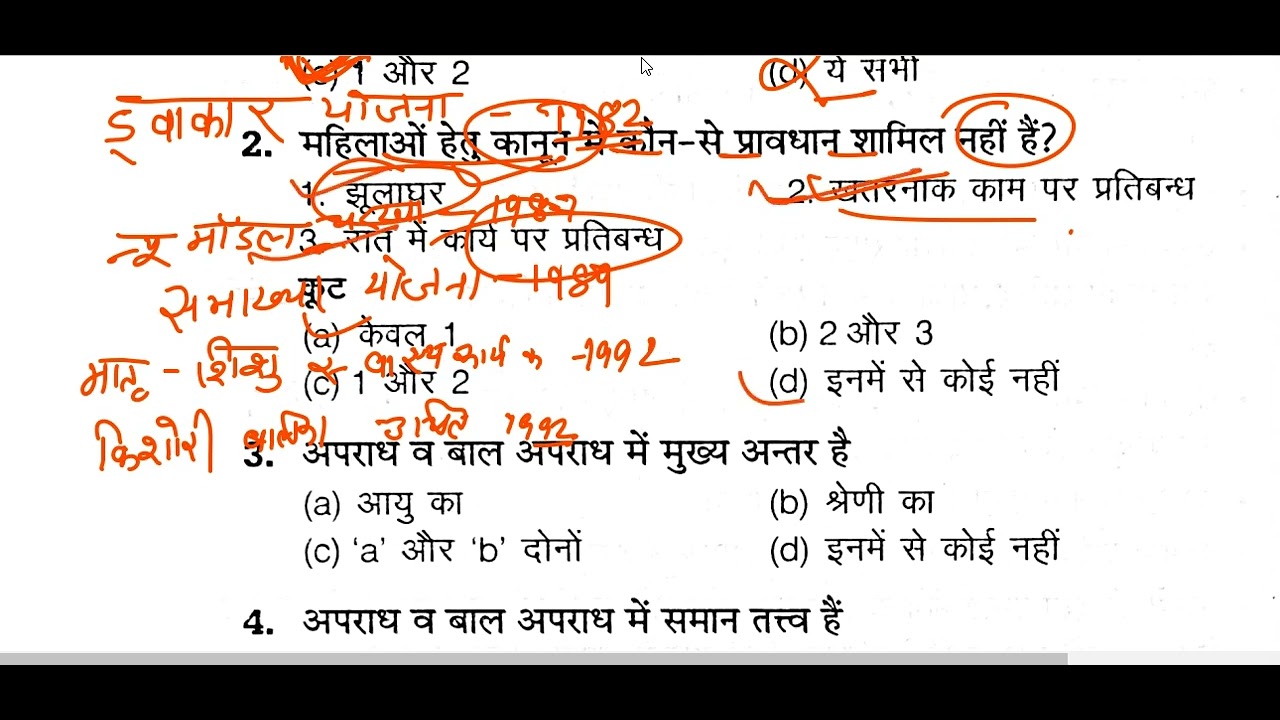 (c) 1 और 2 (d) ये सभी
ड्वाकार योजना - 1982
2. महिलाओं हेतु कानून में कौन-से प्रावधान शामिल नहीं हैं?
1. झूलाघर 2. खतरनाक काम पर प्रतिबन्ध
न्यू मॉडल चरखा - 1987
3. रात में कार्य पर प्रतिबन्ध
कूट
समाख्या योजना - 1989
(a) केवल 1 (b) 2 और 3
मातृ - शिशु स्वास्थ्य कार्यक्र - 1992
(c) 1 और 2 (d) इनमें से कोई नहीं
किशोरी बालिका 1992
3. अपराध व बाल अपराध में मुख्य अन्तर है
(a) आयु का (b) श्रेणी का
(c) ‘a’ और ‘b’ दोनों (d) इनमें से कोई नहीं
4. अपराध व बाल अपराध में समान तत्त्व हैं